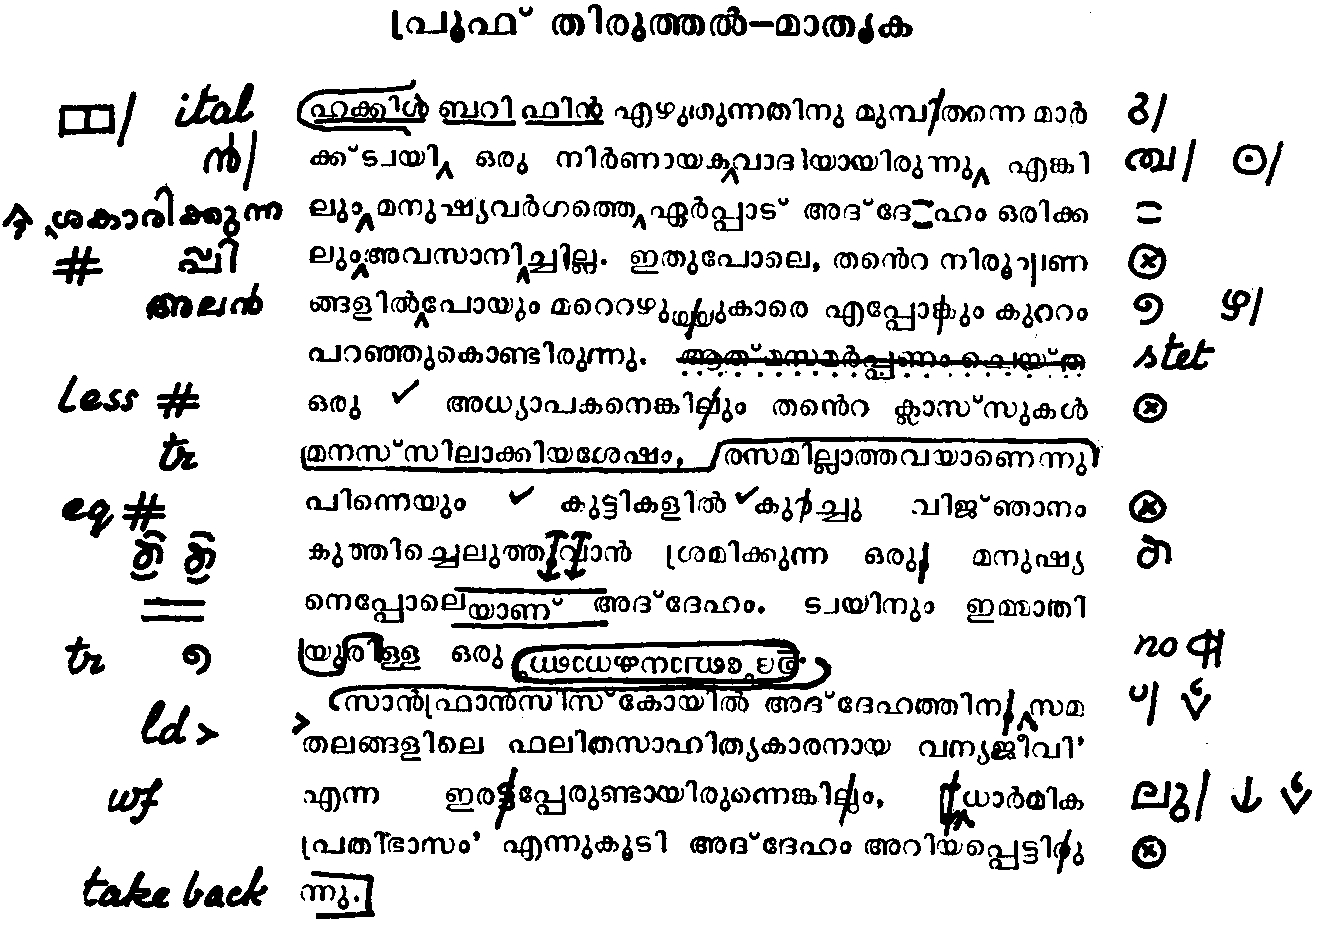 പ്രൂഫ് തിരുത്തൽ—മാതൃക
□□/ ital ഹക്കിൾ ബറി ഫിൻ എഴുതുന്നതിനു മുമ്പ് തന്നെ മാർ
ൻ/ ക്ക്ട്വയി ഒരു നിർണായകവാദിയായിരുന്നു എങ്കി ത്വ/ ⊙/
ശകാരിക്കുന്ന ലും മനുഷ്യവർഗത്തെ ഏർപ്പാട് അദ്ദേഹം ഒരിക്ക =
# പ്പി ലും അവസാനിച്ചില്ല. ഇതുപോലെ, തൻെറ നിരൂപണ ⊗
അലൻ ങ്ങളിൽപോയും മറെറഴുത്തുകാരെ എപ്പോഴും കുററം ഴ/
പറഞ്ഞുകൊണ്ടിരുന്നു. ആത്മസമർപ്പണം ചെയ്ത stet
less # ഒരു അധ്യാപകനെങ്കിലും തൻെറ ക്ലാസ്സുകൾ ⊗
tr മനസ്സിലാക്കിയശേഷം, രസമില്ലാത്തവയാണെന്നു
eq # പിന്നെയും കുട്ടികളിൽ കുറച്ചു വിജ്ഞാനം ⊗
കുത്തിച്ചെലുത്തുവാൻ ശ്രമിക്കുന്ന ഒരു മനുഷ്യ
= നെപ്പോലെയാണ് അദ്ദേഹം. ട്വയിനും ഇമ്മാതി
tr യുരിള്ള ഒരു no ¶
സാൻഫ്രാൻസിസ്കോയിൽ അദ്ദേഹത്തിന സമ
ld > തലങ്ങളിലെ ഫലിതസാഹിത്യകാരനായ വന്യജീവി'
wf എന്ന ഇരട്ടപ്പേരുണ്ടായിരുന്നെങ്കിലും, ധാർമിക ലു/ ↓
പ്രതിഭാസം' എന്നുകൂടി അദ്ദേഹം അറിയപ്പെട്ടിരു ⊗
take back ന്നു.